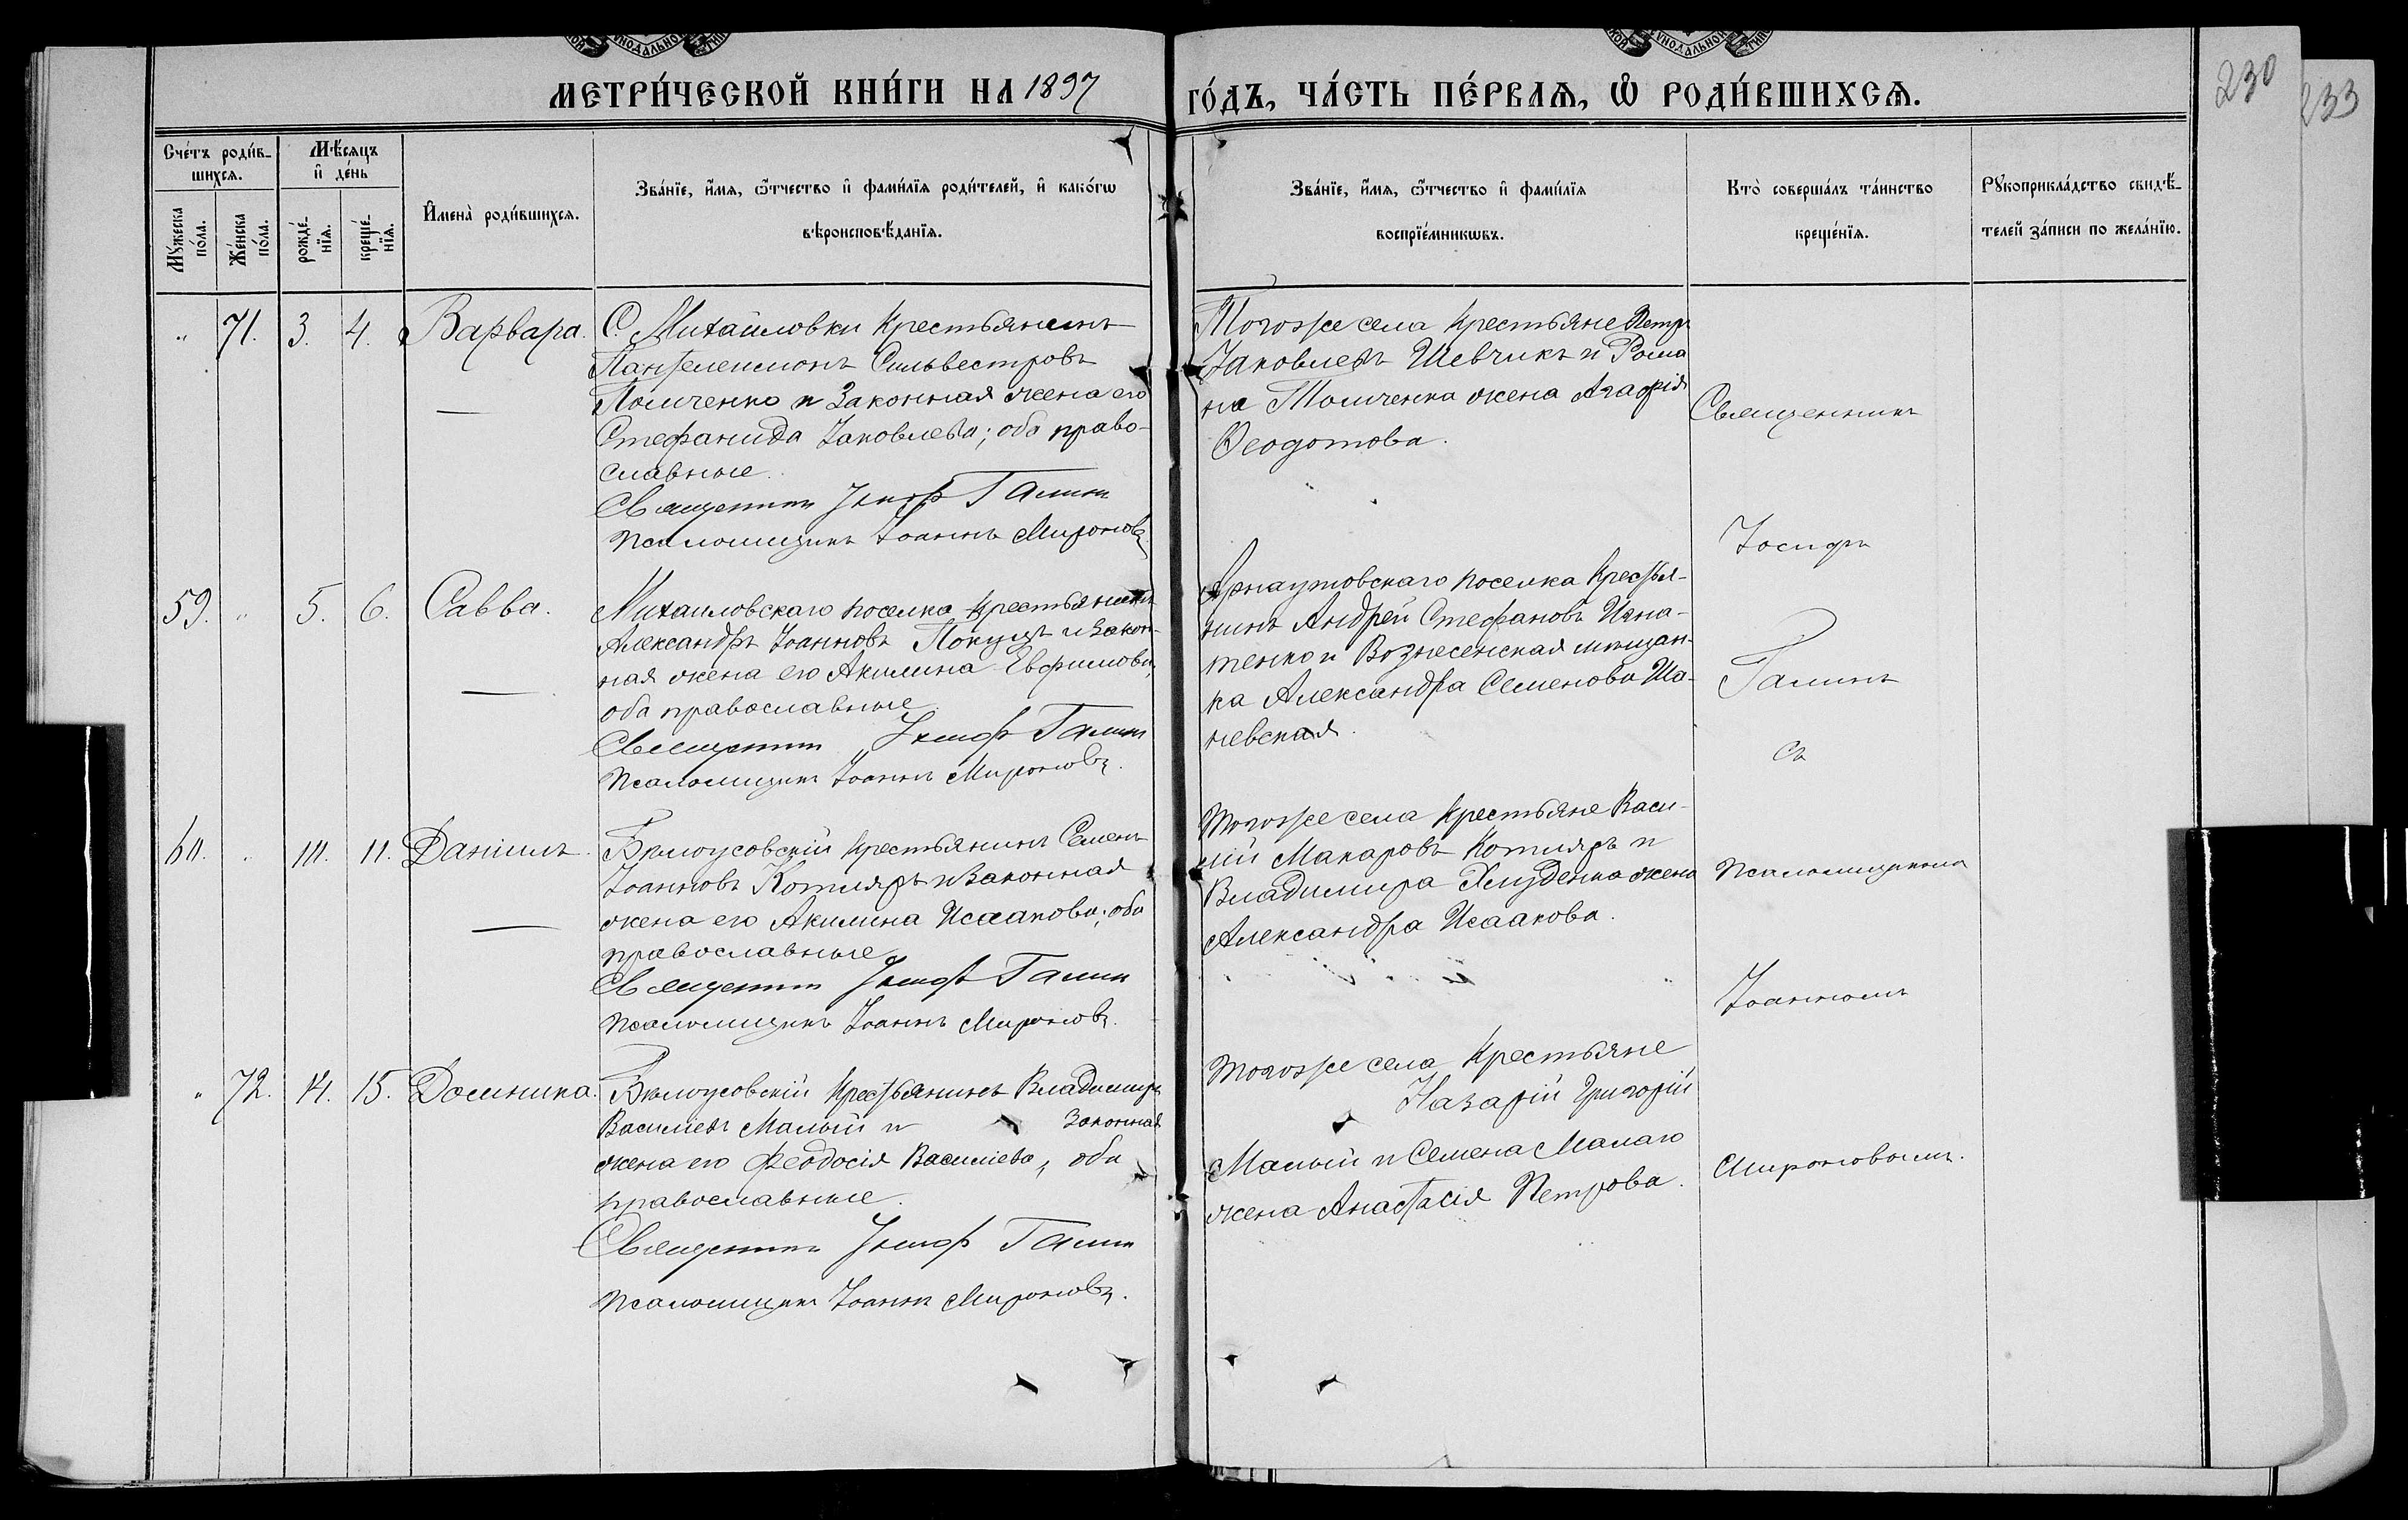 МЕТРИ́ЧЕСКОЙ КНИ́ГИ НА 1897 ГО́ДЪ, ЧА́СТЬ ПЕ́РВАѦ, Ѡ҆ РОДИ́ВШИХСѦ.
230
233
Сче́тъ роди́в-
шихся.
Мѣ́сяцъ
и҆ де́нь
Му́жеска
по́ла.
Же́нска
по́ла.
рожде́-
нїя.
креще́-
нїя.
И҆мена̀ роди́вшихся.
Зва́нїе, и҆́мя, ѻ҆́тчество и҆ фами́лїя роди́телей, и҆ како́гѡ
вѣроисповѣ́данїя.
Зва́нїе, и҆́мя, ѻ҆́тчество и҆ фами́лїя
воспрїе́мникѡвъ.
Кто̀ соверша́лъ та́инство
креще́нїя.
Рꙋкоприкла́дство свидѣ́-
телей за́писи по жела́нїю.
" 71. 3. 4. Варвара.
С. Михайловки крестьянинъ
Пантелеимонъ Сильвестровъ
и Законная жена его
Стефанида Іаковлева; оба право-
славные.
Священник Іосиф Галин
Псаломщикъ Іоаннъ Мироновъ
Тогоже села крестьяне Петръ
Іаковлевъ Шевчикъ и Рома
на жена Агафія
Ѳеодотова.
59. " 5. 6. Савва.
Михаиловскаго поселка крестьянинъ
Александръ Іоанновъ и закон-
ная жена его Акилина Евфимова,
оба православные.
Священник Іосиф Галин
Псаломщикъ Іоаннъ Мироновъ.
Арнаутовскаго поселка крестья-
нинъ Андрей Стефановъ Игна-
тенко и Вознесенская мѣщан-
ка Александра Семенова
невская.
60. " 10. 11. Даніилъ.
Бѣлоусовскій крестьянинъ Семенъ
Іоанновъ Котляръ и законная
жена его Акилина Исаакова; оба
православные
Священник Іосиф Галин
Псаломщикъ Іоаннъ Мироновъ.
Тогоже села крестьяне Васи-
лій Макаровъ Котляръ и
Владимира жена
Александра Исаакова.
" 72. 14. 15. Домника.
Бѣлоусовскій крестьянинъ Владимиръ
Василіевъ Малый и законная
жена его Феодосія Василіева, оба
православные.
Священник Іосиф Галин
Псаломщикъ Іоаннъ Мироновъ.
Тогоже села крестьяне
Назарій Григорій
Малый и Семена Малаго
жена Анастасія Петрова.
Священникъ
Іосифъ
Галинъ
съ
Псаломщикомъ
Іоанномъ
Мироновымъ.